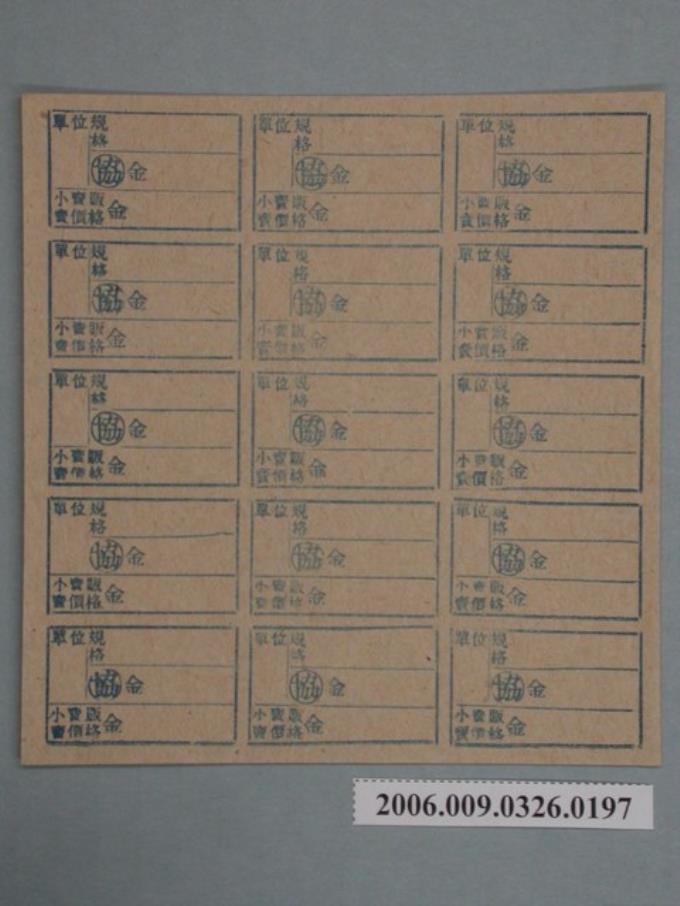 單位規
格
協 金
小賣販
賣價格 金
單位規
格
協 金
小賣販
賣價格 金
單位規
格
協 金
小賣販
賣價格 金
單位規
格
協 金
小賣販
賣價格 金
單位規
格
協 金
小賣販
賣價格 金
單位規
格
協 金
小賣販
賣價格 金
單位規
格
協 金
小賣販
賣價格 金
單位規
格
協 金
小賣販
賣價格 金
單位規
格
協 金
小賣販
賣價格 金
單位規
格
協 金
小賣販
賣價格 金
單位規
格
協 金
小賣販
賣價格 金
單位規
格
協 金
小賣販
賣價格 金
單位規
格
協 金
小賣販
賣價格 金
單位規
格
協 金
小賣販
賣價格 金
單位規
格
協 金
小賣販
賣價格 金
2006.009.0326.0197